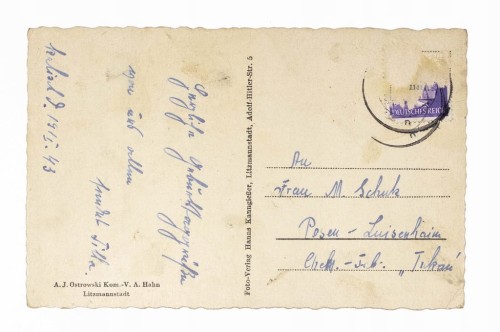 14.I.43
Herzliche Geburtstagsgrüße
von uns allen
sendet
A. J. Ostrowski Kom.-V. A. Hahn
Litzmannstadt
Foto-Verlag Hanns Kanngießer, Litzmannstadt, Adolf-Hitler-Str. 5
DEUTSCHES REICH
An
Frau M. Schulz
Posen - Luisenhain